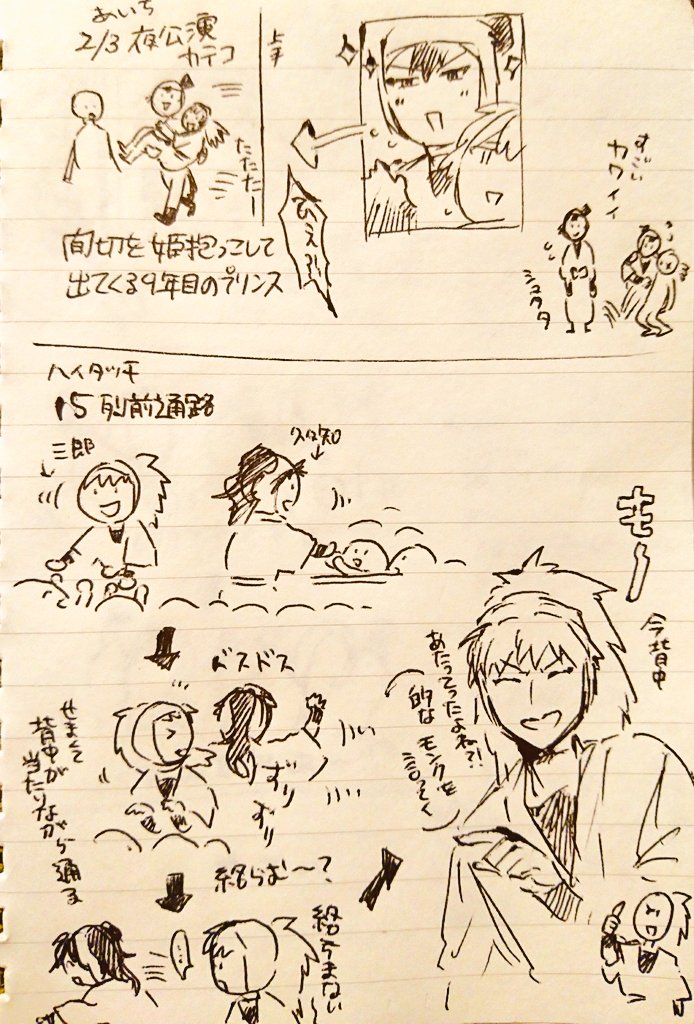 あいち
2/3 夜公演
カテコ
上手
たたたー
ひえっ!!
間切を姫抱っこして
出てくる9年目のプリンス
すごい
カワイイ
ハイタッチ
15列前通路
三郎
久々知
もー
今背中
あたってったよね?!
的なモンクを
言そく
ドスドス
ずり
ずり
せまくて
背中が
当たりながら通る
絡らむ〜?
絡まない
…